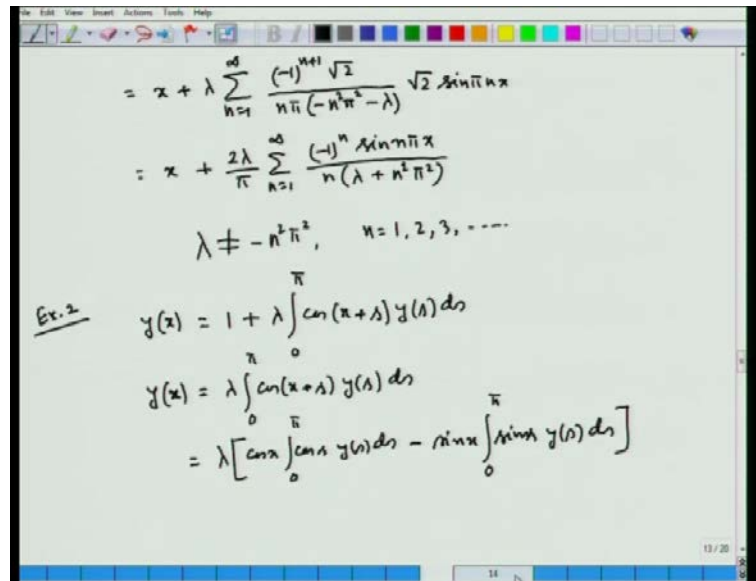 File Edit View Insert Actions Tools Help
= x + λ ∑_{n=1}^{∞} \frac{(-1)^{n+1} √2}{nπ(-n²π² - λ)} √2 sin πnx
= x + \frac{2λ}{π} ∑_{n=1}^{∞} \frac{(-1)^n sin nπx}{n(λ + n²π²)}
λ ≠ -n²π², n = 1, 2, 3, ----
Ex. 2 y(x) = 1 + λ ∫_0^π cos(x+s) y(s) ds
y(x) = λ ∫_0^π cos(x+s) y(s) ds
= λ [cos x ∫_0^π cos s y(s) ds - sin x ∫_0^π sin s y(s) ds]
13 / 20
14